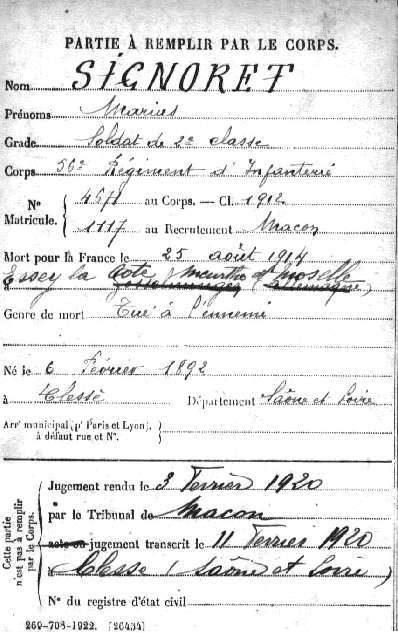 PARTIE À REMPLIR PAR LE CORPS.
Nom SIGNORET
Prénoms Marius
Grade Soldat de 2e classe
Corps 56e Régiment d'Infanterie
N° Matricule. { 4571 au Corps. — Cl. 1912
1117 au Recrutement Macon
Mort pour la France le 25 août 1914
à Essey la Cote (Meurthe et Moselle)
Genre de mort Tué à l'ennemi
Né le 6 Février 1892
à Clessé Département Saône et Loire
Arrt municipal (pr Paris et Lyon),
à défaut rue et N°.
Cette partie n'est pas à remplir par le Corps.
Jugement rendu le 3 Février 1920
par le Tribunal de Macon
acte ou jugement transcrit le 11 Février 1920
à Clesse (Saône et Loire)
N° du registre d'état civil
269-708-1922. [26434]